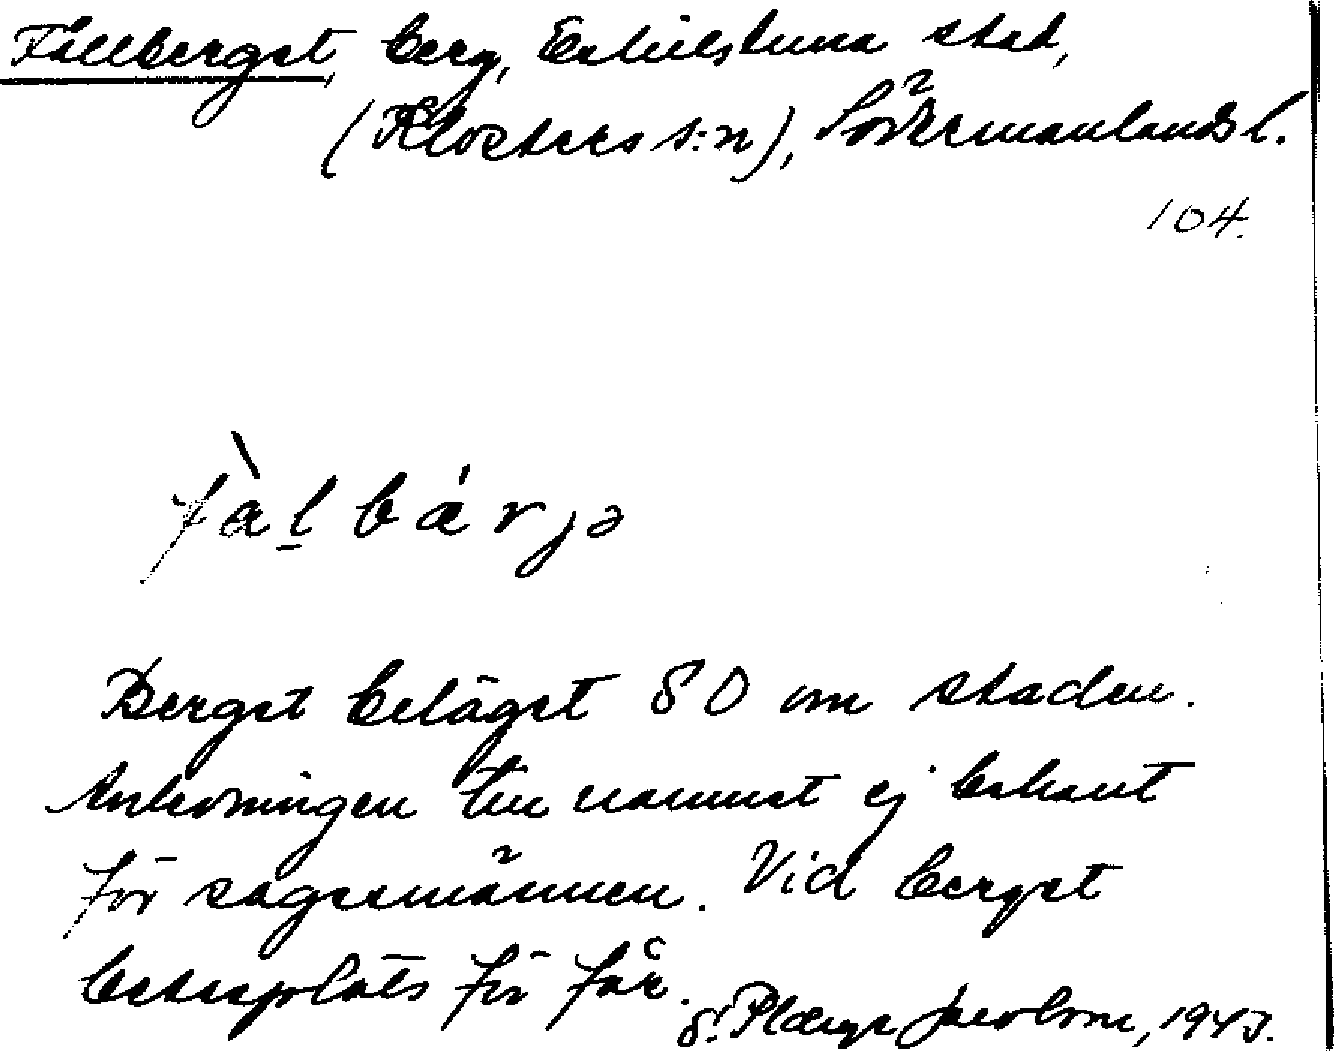 Fållberget, berg, Eskilstuna stad,
(Klosters s:n), Södermanlands l.
104.
fàḷbárjə
Berget beläget SO om staden.
Anledningen till namnet ej bekant
för sagesmännen. Vid berget
betesplats för får.
Jacobson, 1943.